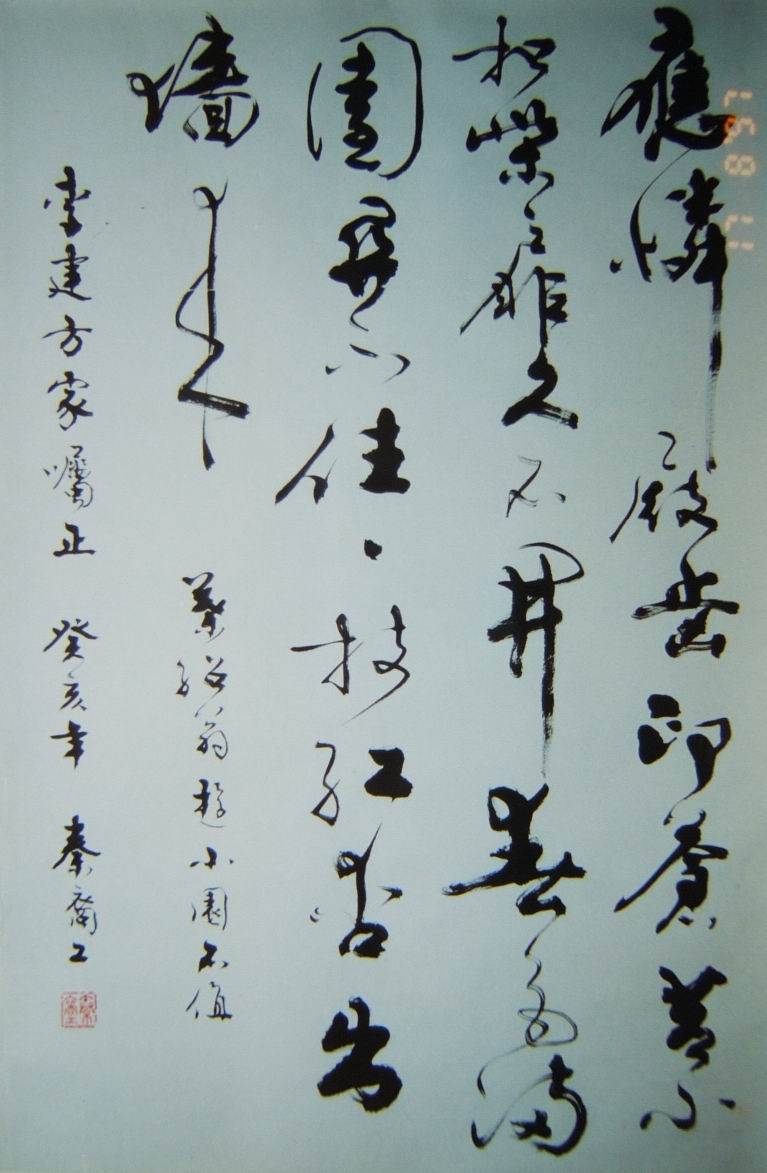 應憐屐齒印蒼苔小
扣柴扉久不開春色滿
園關不住一枝紅杏出
墻来 葉紹翁遊小園不值
李建方家囑正 癸亥年 秦裔工
17 8 97